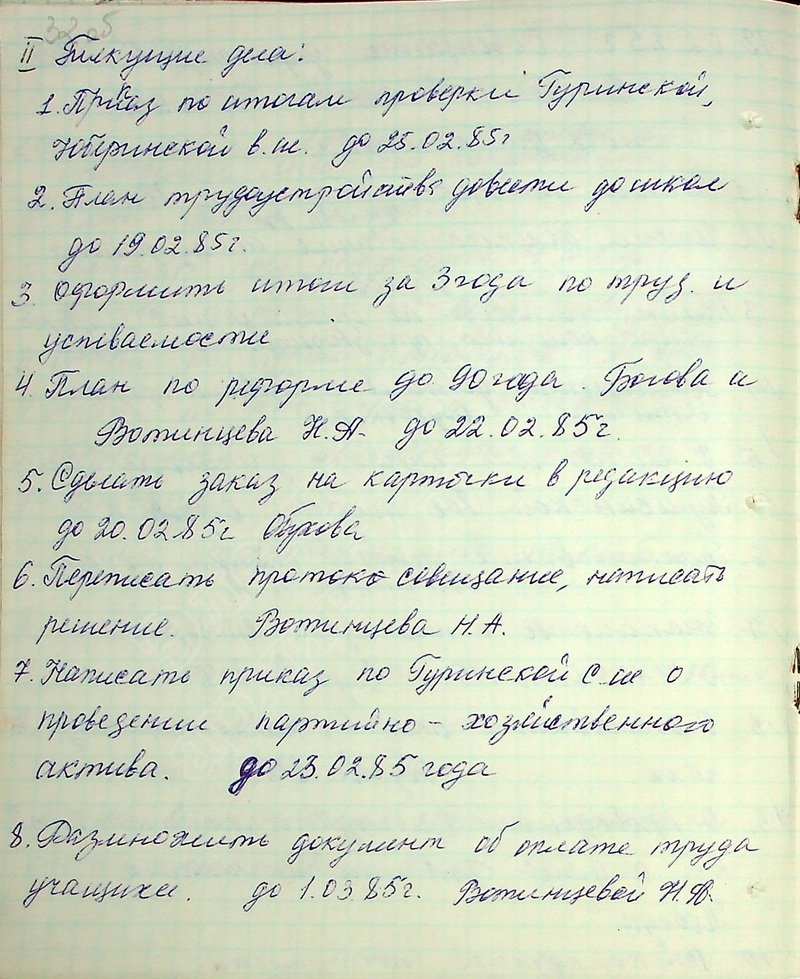 32 об
II Текущие дела:
1. Приказ по итогам проверки Гуринской,
Юберинской в.ш. до 25.02.85г
2. План трудоустройства довести до школ
до 19.02.85г.
3. Оформить итоги за 3 года по труд. и
успеваемости
4. План по реформе до 90 года. Богова и
Вожинцева Н.А. до 22.02.85г.
5. Сделать заказ на карточки в редакцию
до 20.02.85г Обухова
6. Переписать проток совещание, написать
решение. Вотинцева Н.А.
7. Написать приказ по Гуринской с.ш о
проведении партийно - хозяйственного
актива. до 23.02.85 года
8. Размножить документ об оплате труда
учащихся. до 1.03.85г. Вотинцевой Н.А.